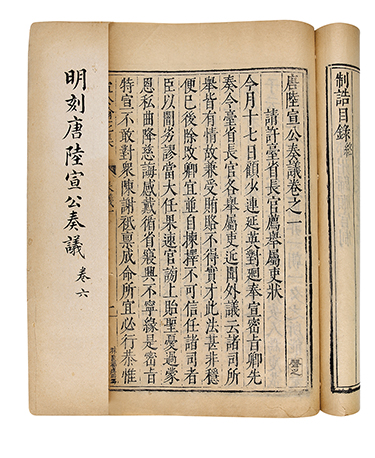 制誥目錄終
唐陸宣公奏議卷之一
請許臺省長官薦舉屬吏狀
今月十七日顧少連延英對迴奉宣密旨卿先
奏令臺省長官各舉屬吏近聞外議云諸司所
舉皆有情故兼受賄賂不得實才此法甚非穩
便已後除改卿宜並自揀擇不可信任諸司者
臣以闇劣謬當大任果速官謗上貽聖憂過蒙
恩私曲隆慈誨感戴循省寢興不寧緣是密旨
特宣不敢對衆陳謝祗稟成命所宜必行恭惟
明刻唐陸宣公奏議 卷六